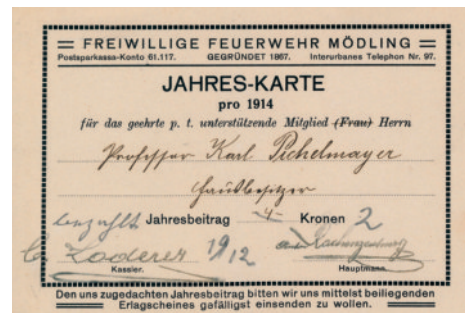 = FREIWILLIGE FEUERWEHR MÖDLING =
Postsparkassa-Konto 61.117. GEGRÜNDET 1867. Interurbanes Telephon Nr. 97.
JAHRES-KARTE
pro 1914
für das geehrte p. t. unterstützende Mitglied (Frau) Herrn
Professor Karl Pichelmayer
Hausbesitzer
bezahlt Jahresbeitrag 4 Kronen 2
Loderer 19/12
Kassier. Hauptmann.
Den uns zugedachten Jahresbeitrag bitten wir uns mittelst beiliegenden
Erlagscheines gefälligst einsenden zu wollen.